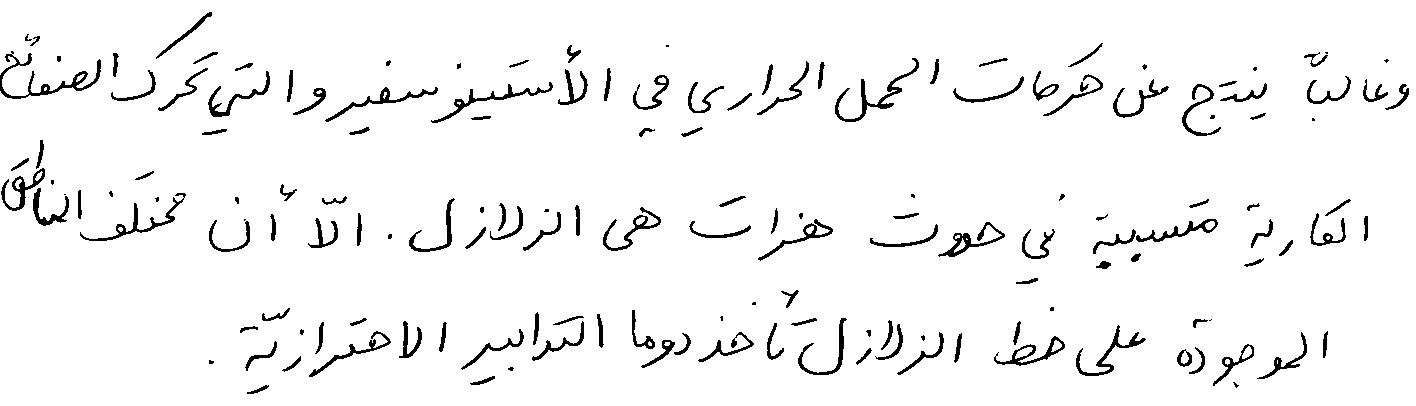 وغالبًا ينتج عن حركات الحمل الحراري في الأستينوسفير والتي تحرك الصفائح
القارية متسببة في حدوث هزات هي الزلازل. الّا أن مختلف المناطق
الموجودة على خط الزلازل تأخذ دوما التدابير الاحترازيّة.